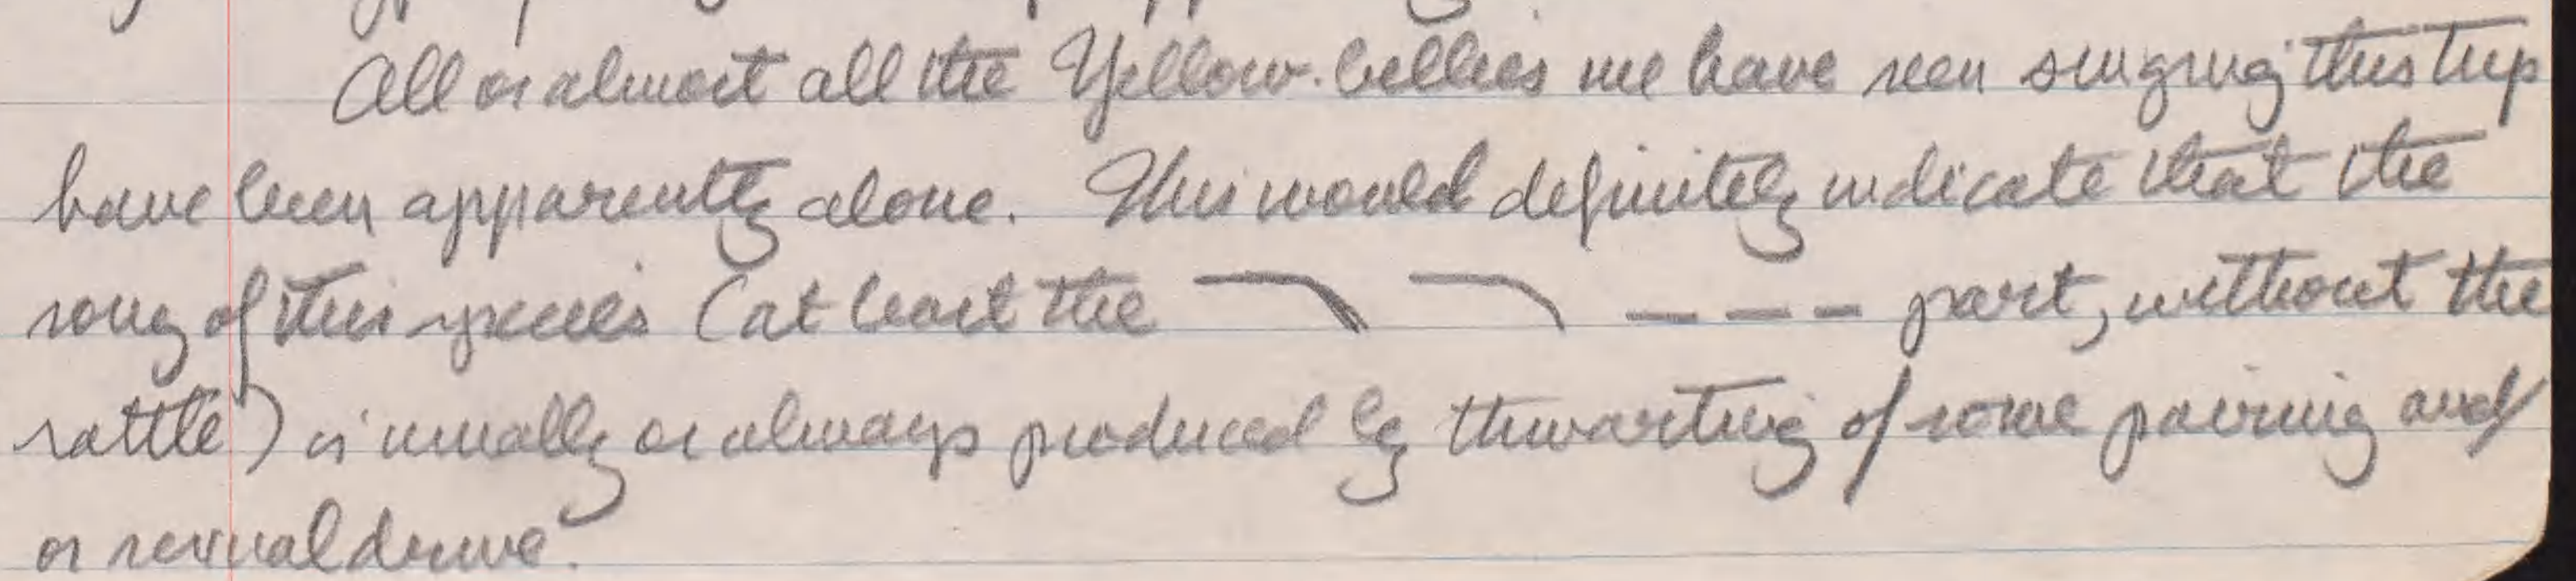 All or almost all the Yellow-bellies we have seen singing this trip
have been apparently alone. This would definitely indicate that the
song of this species (at least the — — – – – part, without the
rattle) is usually or always produced by thwarting of some pairing and
or sexual drive.